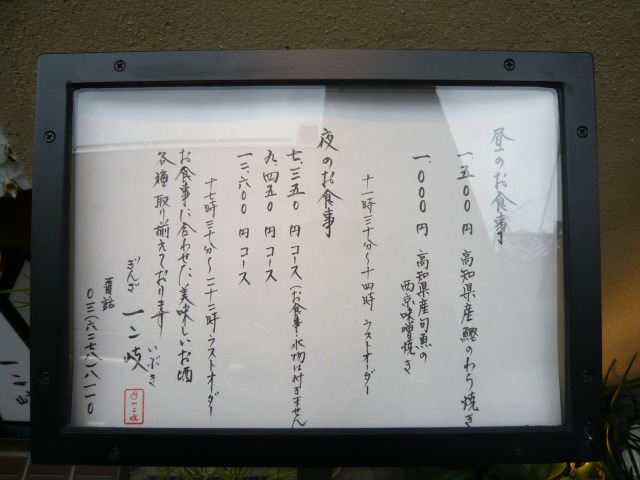 昼のお食事
一、五〇〇円 高知県産鰹のわら焼き
一、〇〇〇円 高知県産旬魚の
西京味噌焼き
十一時三十分〜十四時 ラストオーダー
夜のお食事
七、三五〇円コース（お食事・水物は付きません
九、四五〇円コース
一二、六〇〇円コース
十七時三十分〜二十二時ラストオーダー
お食事に合わせた、美味しいお酒
各種取り揃えております
いぶき
ぎんざ 一二岐
電話
〇三（六二七八）八一一〇